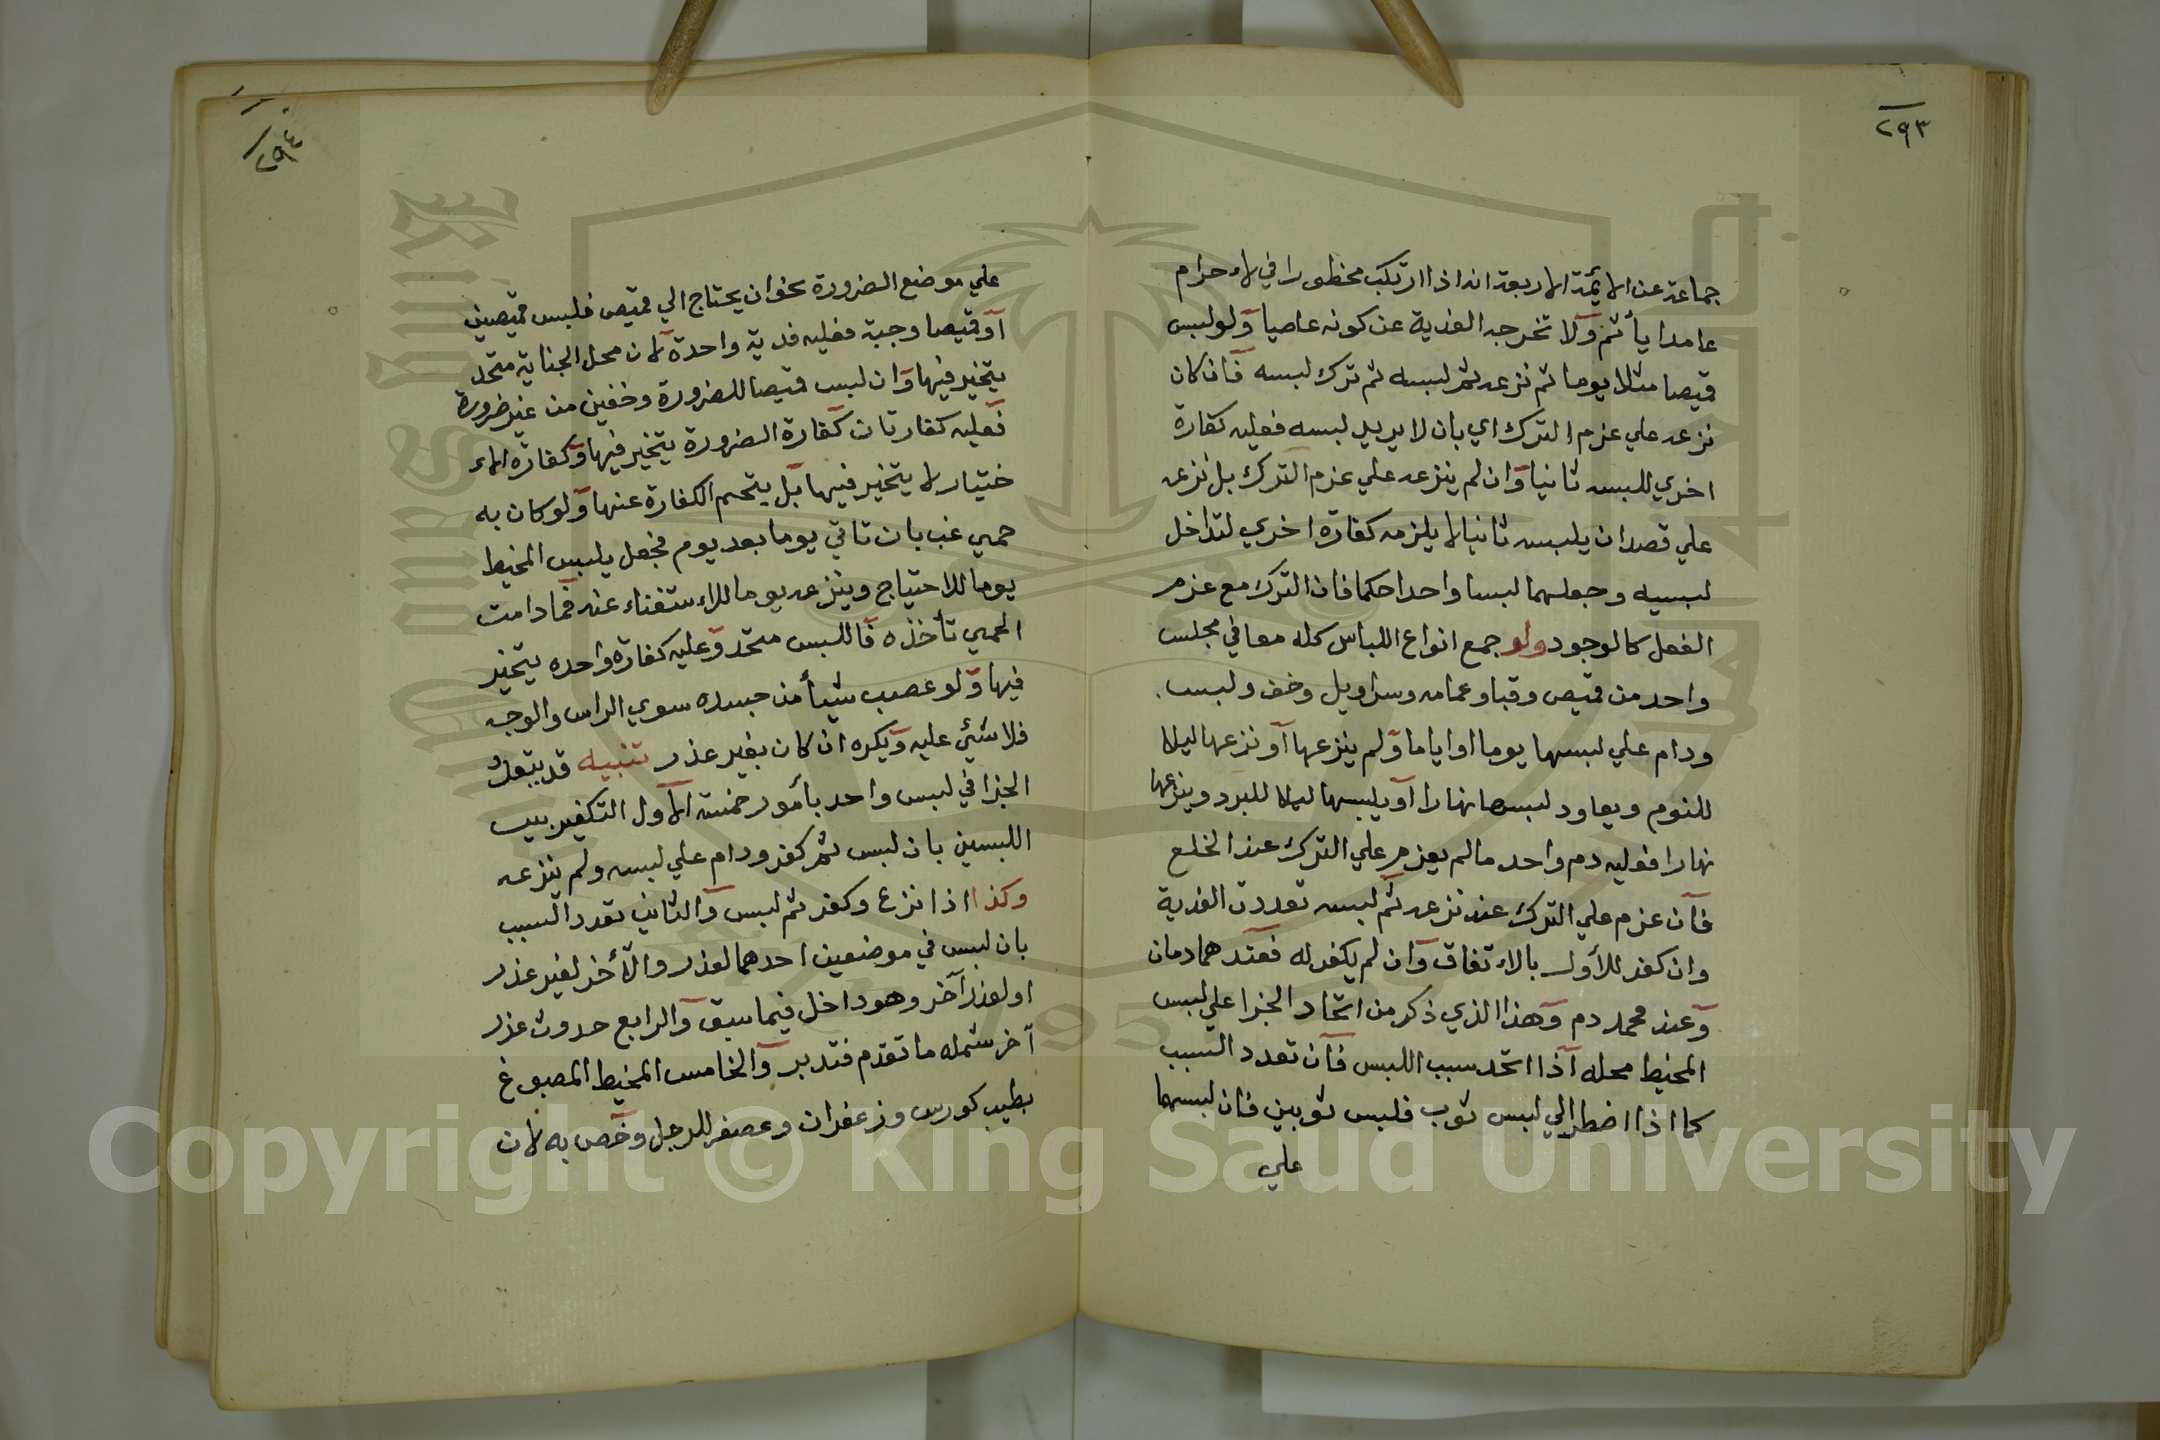 ٢٩٣
جماعة عن الايمة الاربعة انه اذا ارتكب محظورا في الاحرام
عامدا يأثم ولا تخرجه الفدية عن كونه عاصيا ولو لبس
قميصا مثلا يوما ثم نزعه ثم لبسه ثم ترك لبسه فان كان
نزعه علي عزم الترك اي بان لا يريد لبسه فعليه كفارة
اخري للبسه ثانيا وان لم ينزعه علي عزم الترك بل نزعه
علي قصد ان يلبسه ثانيا لا يلزمه كفارة اخري لتداخل
لبسيه وجعلهما لبسا واحدا حكما فان الترك مع عزم
الفعل كالوجود ولو جمع انواع اللباس كله معا في مجلس
واحد من قميص وقبا وعمامه وسراويل وخف ولبس
ودام علي لبسها يوما او اياما ولم ينزعها أو نزعها ليلا
للنوم ويعاود لبسها نهارا أو يلبسها ليلا للبرد وينزعها
نهارا فعليه دم واحد ما لم يعزم علي الترك عند الخلع
فان عزم علي الترك عند نزعه ثم لبسه تعددت الفدية
وان كفر للأول بالاتفاق وان لم يكفر له فعندهما دمان
وعند محمد دم وهذا الذي ذكر من اتحاد الجزا علي لبس
المخيط محله اذا اتحد سبب اللبس فان تعدد السبب
كما اذا اضطر الي لبس ثوب فلبس ثوبين فان لبسهما
علي
٢٩٤
علي موضع الضرورة نحو ان يحتاج الي قميص فلبس قميصين
أو قميصا وجبة فعليه فدية واحدة لان محل الجناية متحد
يتخير فيها وان لبس قميصا للضرورة وخفين من غير ضرورة
فعليه كفارتان كفارة الضرورة يتخير فيها وكفارة الا
ختيار لا يتخير فيها بل يتحم الكفارة عنها ولو كان به
حمي غب بان تاتي يوما بعد يوم فجعل يلبس المخيط
يوما للاحتياج وينزعه يوما للاستغناء عنه فما دامت
الحمي تأخذه فاللبس متحد وعليه كفارة واحده يتخير
فيها ولو عصب شيأ من جسده سوي الراس والوجه
فلا شيئ عليه ويكره ان كان بغير عذر تنبيه قد يتعدد
الجزا في لبس واحد بأمور خمسة الأول التكفير بين
اللبسين بان لبس ثم كفر ودام علي لبسه ولم ينزعه
وكذا اذا نزع وكفر ثم لبس والثاني تعدد السبب
بان لبس في موضعين احدهما لعذر والأخر لغير عذر
او لعذر آخر وهو داخل فيما سبق والرابع حدوث عذر
آخر شمله ما تقدم فتدبر والخامس المخيط المصبوغ
بطيب كورس وزعفران وعصفر للرجل وخص به لان
Copyright © King Saud University